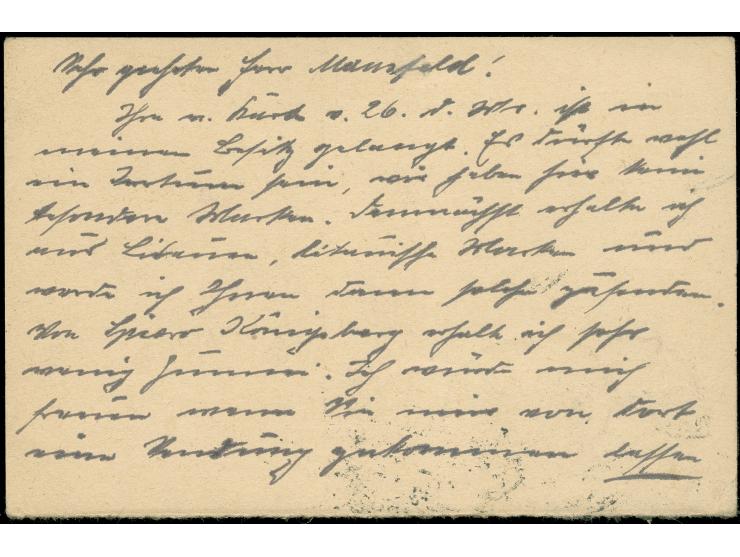 Sehr geehrter Herr Mansfeld!
Ihre w. Karte v. 26. d. Mts. ist in
meinen Besitz gelangt. Es dürfte wohl
ein Irrtum sein, wir haben hier kein
besondere Marken. Demnächst erhalte ich
aus Litauen, litauische Marken und
werde ich Ihnen dann solche zusenden.
Von Königsberg erhalte ich sehr
wenig. Ich würde mich
freuen wenn Sie mir von dort
eine Sendung zukommen lassen